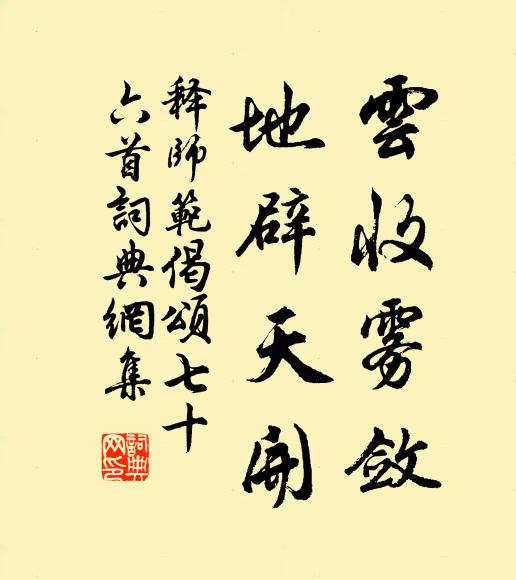 雲收雾斂
地辟天開
释師範偈頌七十
六首詞典網集
詞典
网印